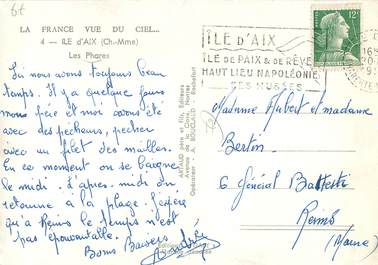 LA FRANCE VUE DU CIEL...
4 - ILE d'AIX (Ch.-Mme)
Les Phares
Ici nous avons toujours beau
temps. Il y a quelque jours
mon frère et moi avons été
avec des pêcheurs, pêcher
avec un filet des mailles.
En ce moment on se baigne
le midi. d'après-midi on
retourne à la plage. J'espère
qu'à Reims le temps n'est
pas épouvantable.
Bons Baisers
Andrée
ARTAUD père et fils, Editeurs
Avenue de la Close, Nantes
Opérateur A. DOUCAUD Rochefort
ILE d'AIX
ILE DE PAIX & DE RÊVE
HAUT LIEU NAPOLÉONIEN
SES MUSÉES
12F
Madame Hubert et madame
Bertin
6 Général Battesti
Reims
(Marne)